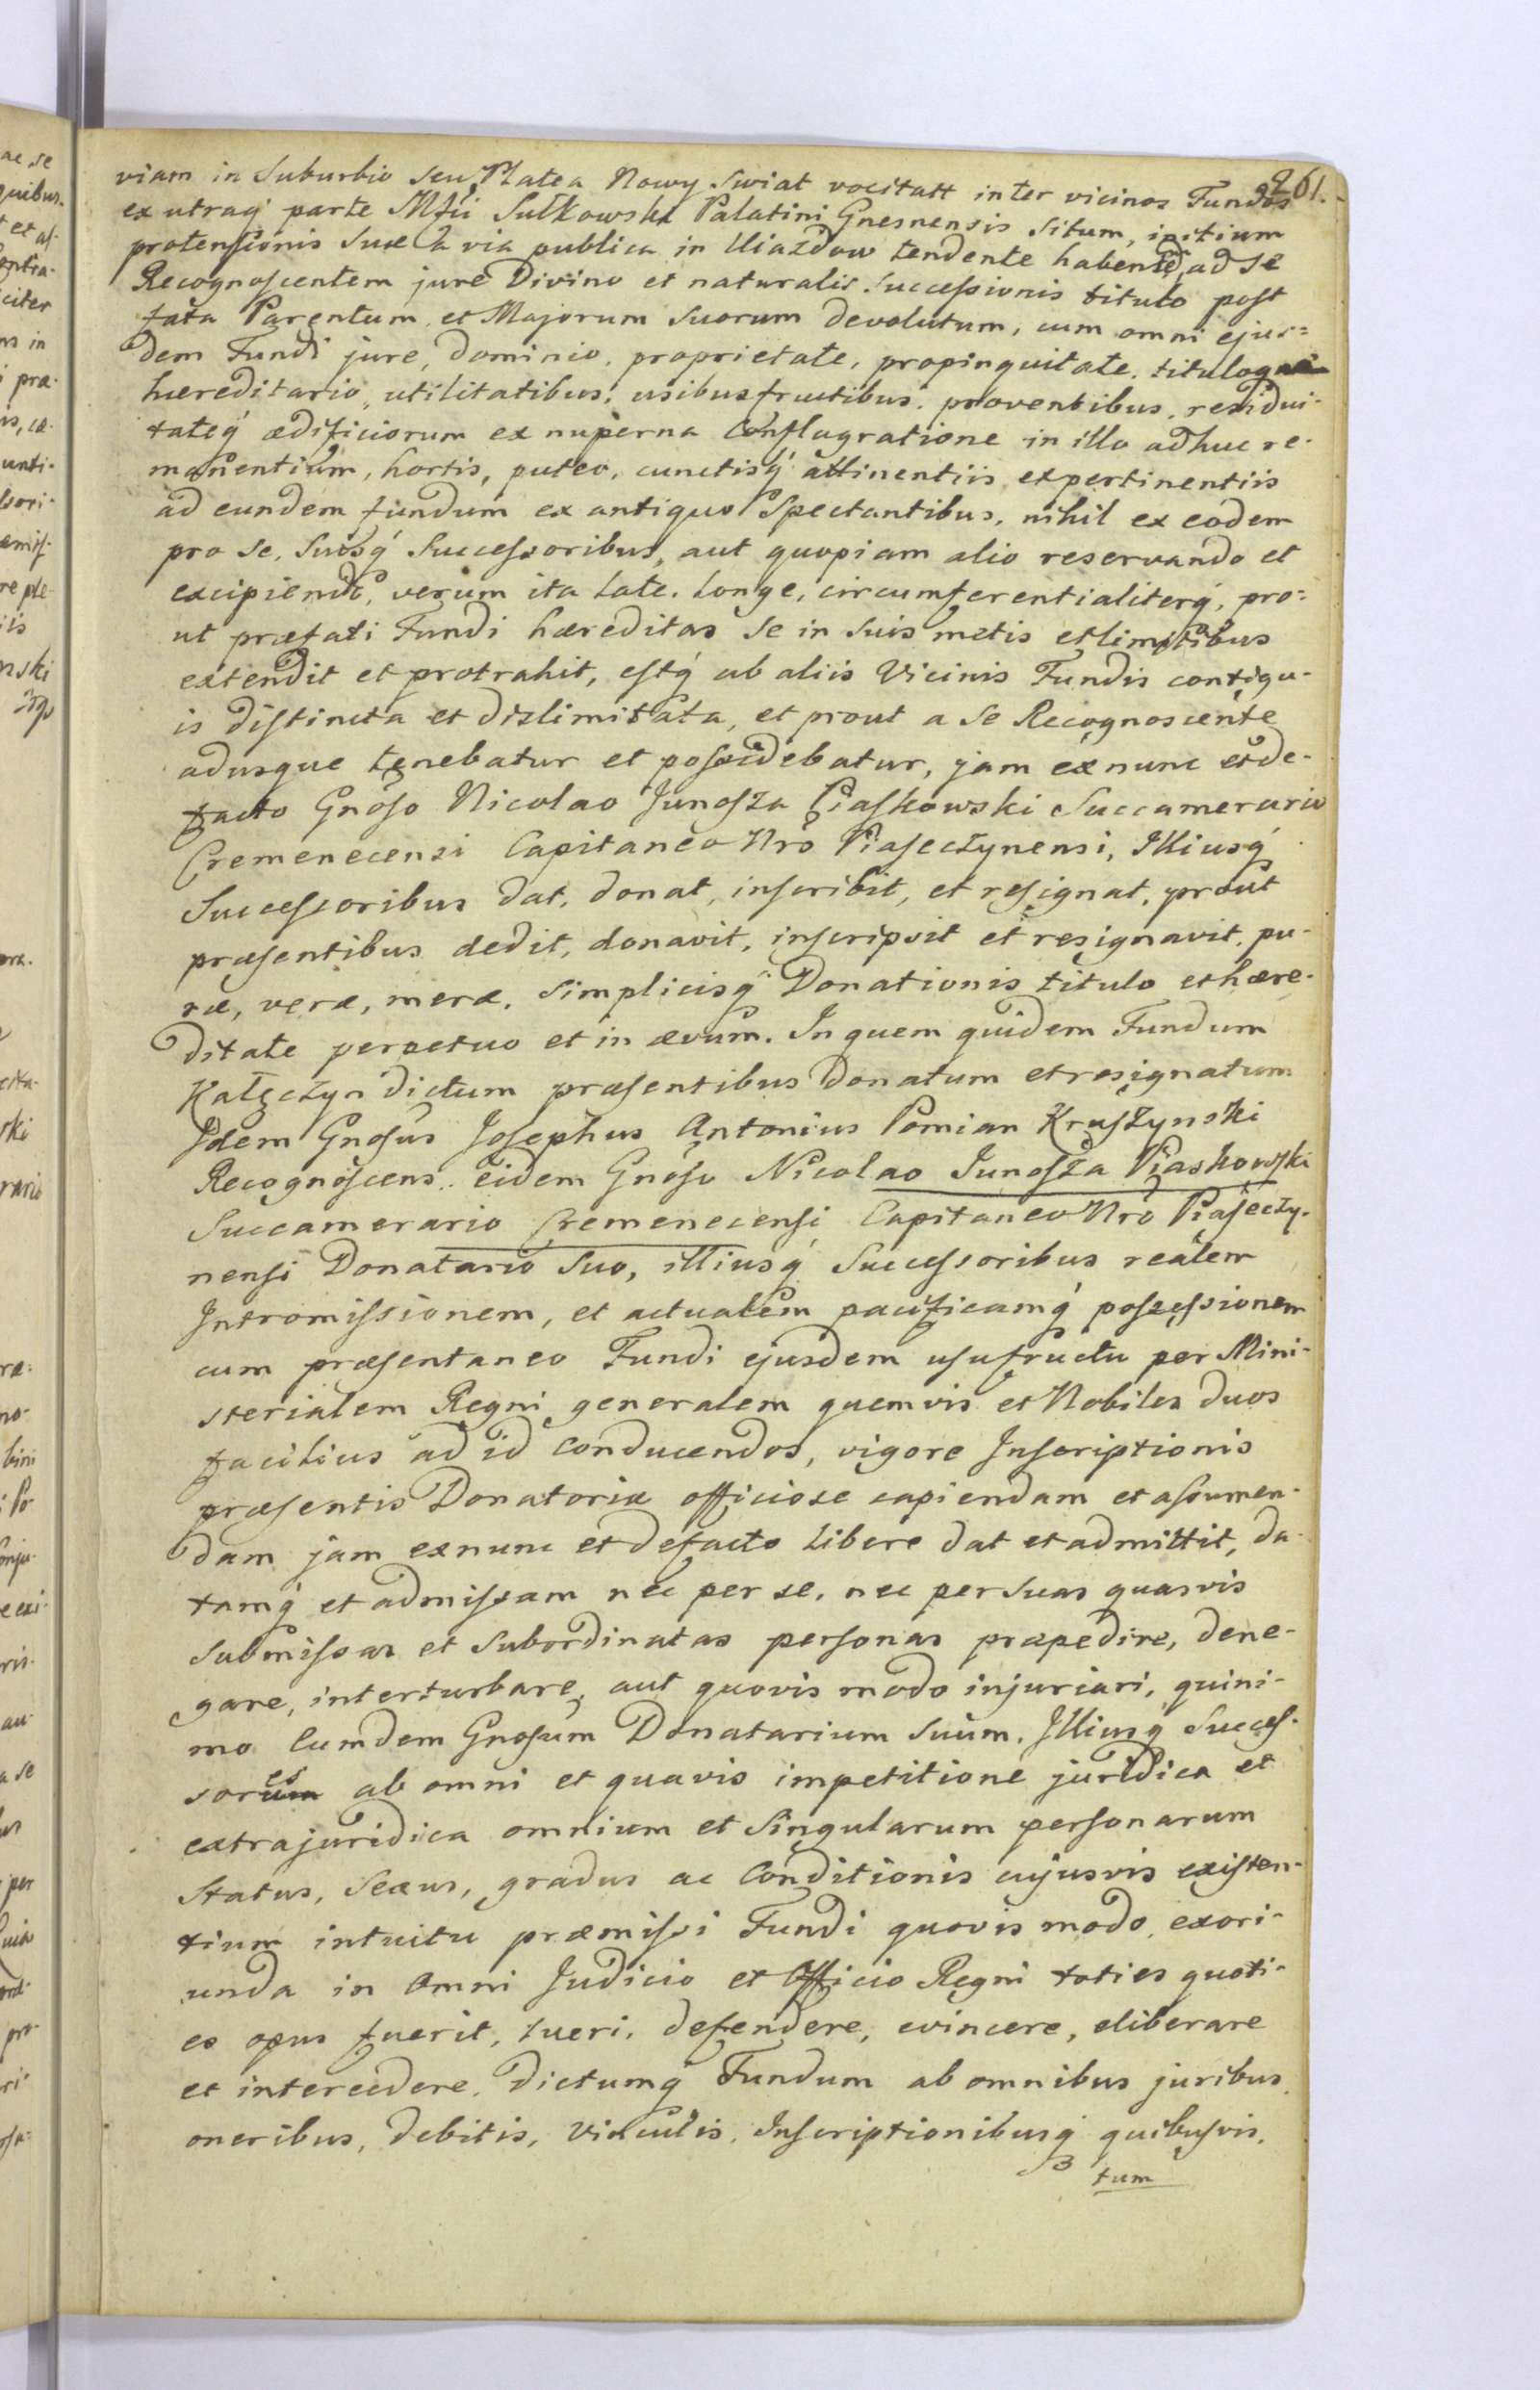 261.
viam in Suburbio seu Platea Nowy Swiat vocitatt inter vicinos Fundos
ex utraq́ parte Mfii Sułkowski Palatini Gnesnensis Situm, initium
protensionis suæ a via publica in Uiazdow tendente habentẽ, ad se
Recognoscentem jure Divino et naturalis Successionis titulo post
fata Parentum et Majorum Suorum devolutum, cum omni ejus=
dem Fundi jure, dominio, proprietate, propinquitate, tituloque
hæreditario, utilitatibus, usibusfructibus, proventibus, residui-
tateq́ ædificiorum ex nuperna Conflagratione in illo adhuc re-
manentium, hortis, puteo, cunctisq́ attinentiis et pertinentiis
ad eundem fundum ex antiquo Spectantibus, nihil ex eodem
pro se, Suisq́ Successoribus, aut quopiam alio reservando et
excipiendo, verum ita Late, Longe, circumferentialiterq́, pro=
ut præfati Fundi hæreditas se in suis metis et limitibus
extendit et protrahit, estq́ ab aliis Vicinis Fundis contigu-
is distincta et dislimitata, et prout a se Recognoscente
adusque tenebatur et possidebatur, jam exnunc et de-
facto Gnoso Nicolao Junosza Piaskowski Succamerario
Cremenecensi Capitaneo Nro Piasectynensi, Illiusq́
Successoribus dat, donat, inscribit, et resignat, prout
præsentibus dedit, donavit, inscripsit et resignavit, pu-
ræ, veræ, meræ, Simplicisq́ Donationis titulo et hære-
ditate perpetuo et in ævum. In quem quidem Fundum
Kałęczyn dictum præsentibus Donatum et resignatum
Idem Gnosus Josephus Antonius Pomian Kruszynski
Recognoscens eidem Gnoso Nicolao Junosza Piaskowski
Succamerario Cremenecensi Capitaneo Nro Piaseczy-
nensi Donatario Suo, illiusq́ Successoribus realem
Intromissionem, et actualem pacificamq́ possessionem
cum præsentaneo Fundi ejusdem usufructu per Mini-
sterialem Regni generalem quemvis et Nobiles duos
facilius ad id conducendos, vigore Inscriptionis
præsentis Donatoriæ officiose capiendam et assumen-
dam jam exnunc et defacto Libere dat et admittit, da-
tamq́ et admissam nec per se, nec per suas quasvis
submissas et subordinatas personas præpedire, dene-
gare, interturbare, aut quovis modo injuriari, quini-
mo Eumdem Gnosum Donatarium Suum, Illiusq́ Succes-
sores ab omni et quavis impetitione juridica et
extrajuridica omnium et Singularum personarum
Status, Sexus, gradus ac Conditionis cujusvis existen-
tium intuitu præmissi Fundi quovis modo exori-
unda in Omni Judicio et Officio Regni toties quoti-
es opus fuerit, tueri, defendere, evincere, eliberare
et intercedere, Dictumq́ Fundum ab omnibus juribus,
oneribus, debitis, vinculis, Inscriptionibusq́ quibusvis,
tum